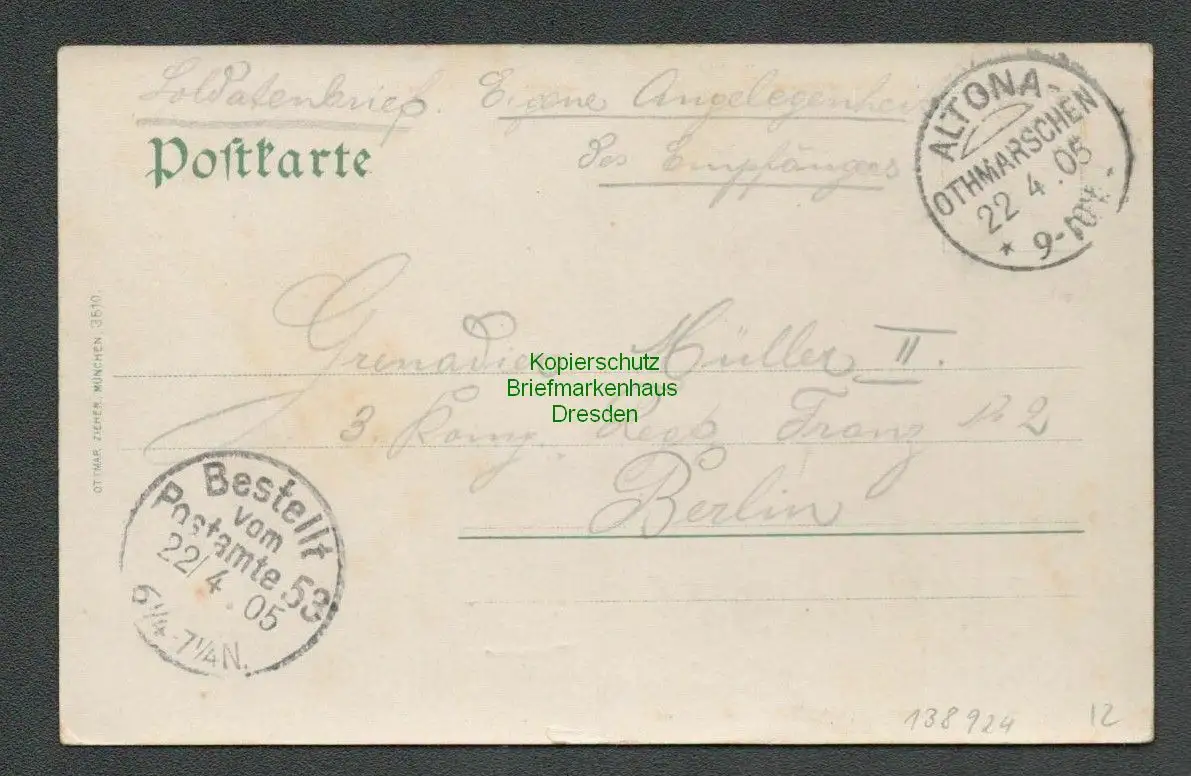 Soldatenbrief. Eigene Angelegenheit
des Empfängers
Postkarte
ALTONA-
OTHMARSCHEN
22 4. 05
* 9-10V.
OTTMAR ZIEHER, MÜNCHEN 3510.
Grenadier Müller II.
3. Komp. Reg. Franz № 2
Berlin
Kopierschutz
Briefmarkenhaus
Dresden
Bestellt
vom
Postamte 53
22/4. 05
6¼-7¼N.
138924
12